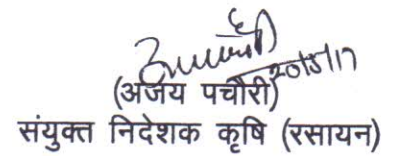 20/5/17
(अजय पचौरी)
संयुक्त निदेशक कृषि (रसायन)